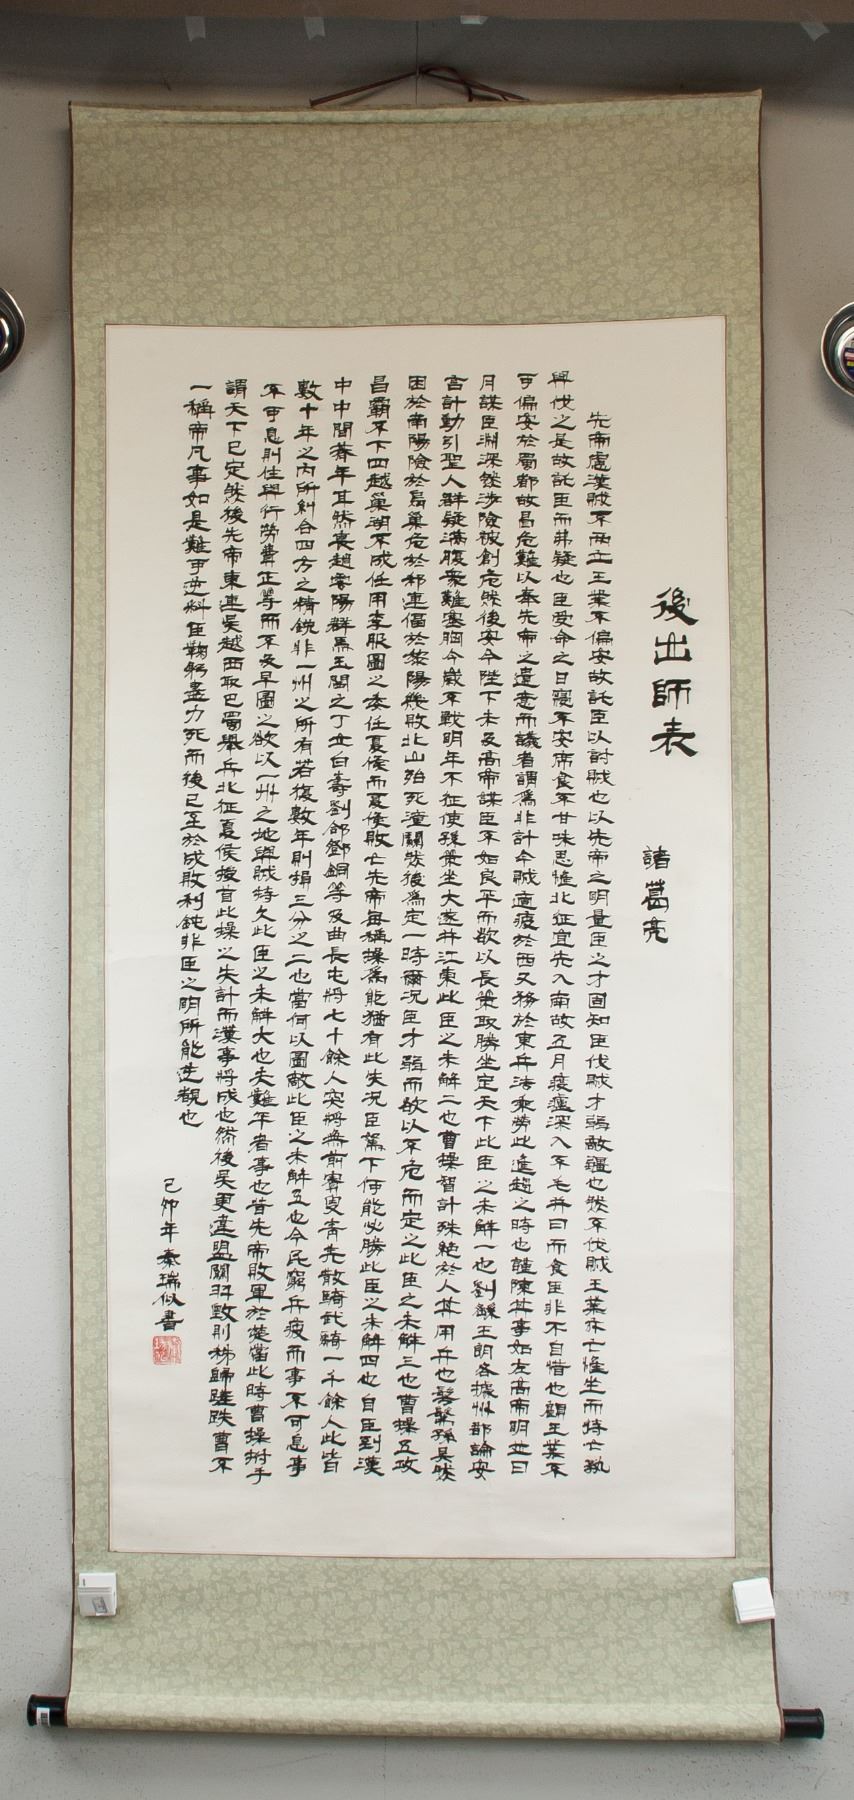 後出師表
諸葛亮
先帝慮漢賊不兩立王業不偏安故託臣以討賊也以先帝之明量臣之才固知臣伐賊才弱敵彊也然不伐賊王業亦亡惟坐而待亡孰
與伐之是故託臣而弗疑也臣受命之日寢不安席食不甘味思惟北征宜先入南故五月渡瀘深入不毛并日而食臣非不自惜也顧王業不
可偏安於蜀都故冒危難以奉先帝之遺意而議者謂爲非計今賊適疲於西又務於東兵法乘勞此進趨之時也謹陳其事如左高帝明並日
月謀臣淵深然涉險被創危然後安今陛下未及高帝謀臣不如良平而欲以長策取勝坐定天下此臣之未解一也劉繇王朗各據州郡論安
言計動引聖人群疑滿腹衆難塞胸今歲不戰明年不征使孫策坐大遂并江東此臣之未解二也曹操智計殊絶於人其用兵也髣髴孫吳然
困於南陽險於烏巢危於祁連偪於黎陽幾敗北山殆死潼關然後爲定一時爾況臣才弱而欲以不危而定之此臣之未解三也曹操五攻
昌霸不下四越巢湖不成任用李服圖之委任夏侯而夏侯敗亡先帝每稱操爲能猶有此失況臣駑下何能必勝此臣之未解四也自臣到漢
中中間朞年耳然喪趙雲陽群馬玉閻之丁立白壽劉郃鄧銅等及曲長屯將七十餘人突將無前賨叟青羌散騎武騎一千餘人此皆
數十年之內所糾合四方之精銳非一州之所有若復數年則損三分之二也當何以圖敵此臣之未解五也今民窮兵疲而事不可息事
不可息則住與行勞費正等而不及早圖之欲以一州之地與賊持久此臣之未解六也夫難平者事也昔先帝敗軍於楚當此時曹操拊手
謂天下已定然後先帝東連吳越西取巴蜀舉兵北征夏侯授首此操之失計而漢事將成也然後吳更違盟關羽毀則秭歸蹉跌曹丕
一稱帝凡事如是難可逆料臣鞠躬盡力死而後已至於成敗利鈍非臣之明所能逆覩也
己卯年秦瑞似書